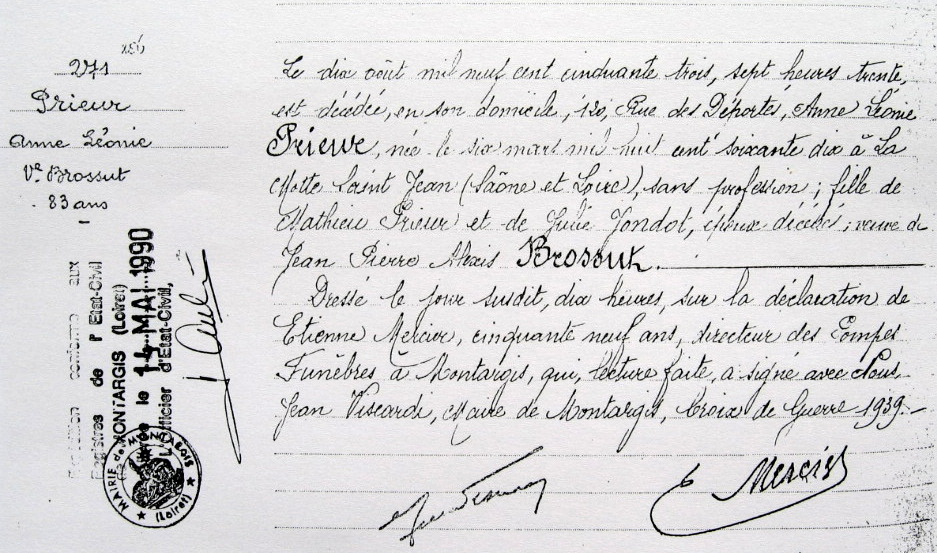 271
Prieur
Anne Léonie
Vve Brossut
83 ans
Le dix août mil neuf cent cinquante trois, sept heures trente,
est décédée, en son domicile, 120, Rue des Déportés, Anne Léonie
Prieur, née le six mars mil huit cent soixante dix à La
Motte Saint Jean (Saône et Loire), sans profession ; fille de
Mathieu Prieur et de Julie Jondot, époux décédés ; veuve de
Jean Pierre Alexis Brossut.
Dressé le jour susdit, dix heures, sur la déclaration de
Etienne Mercier, cinquante neuf ans, directeur des Pompes
Funèbres à Montargis, qui, lecture faite, a signé avec Nous
Jean Viscardi, Maire de Montargis, Croix de Guerre 1939.-
E Mercier
conforme aux
Registres de l'Etat-Civil
MONTARGIS (Loiret)
le 14 MAI 1990
L'Officier d'Etat-Civil,
MAIRIE de MONTARGIS
(Loiret)